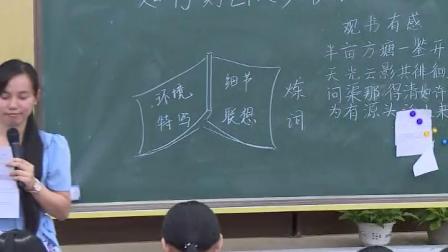 环境
特写
细节
联想
炼
词
观书有感
半亩方塘一鉴开
天光云影共徘徊
问渠那得清如许
为有源头
来